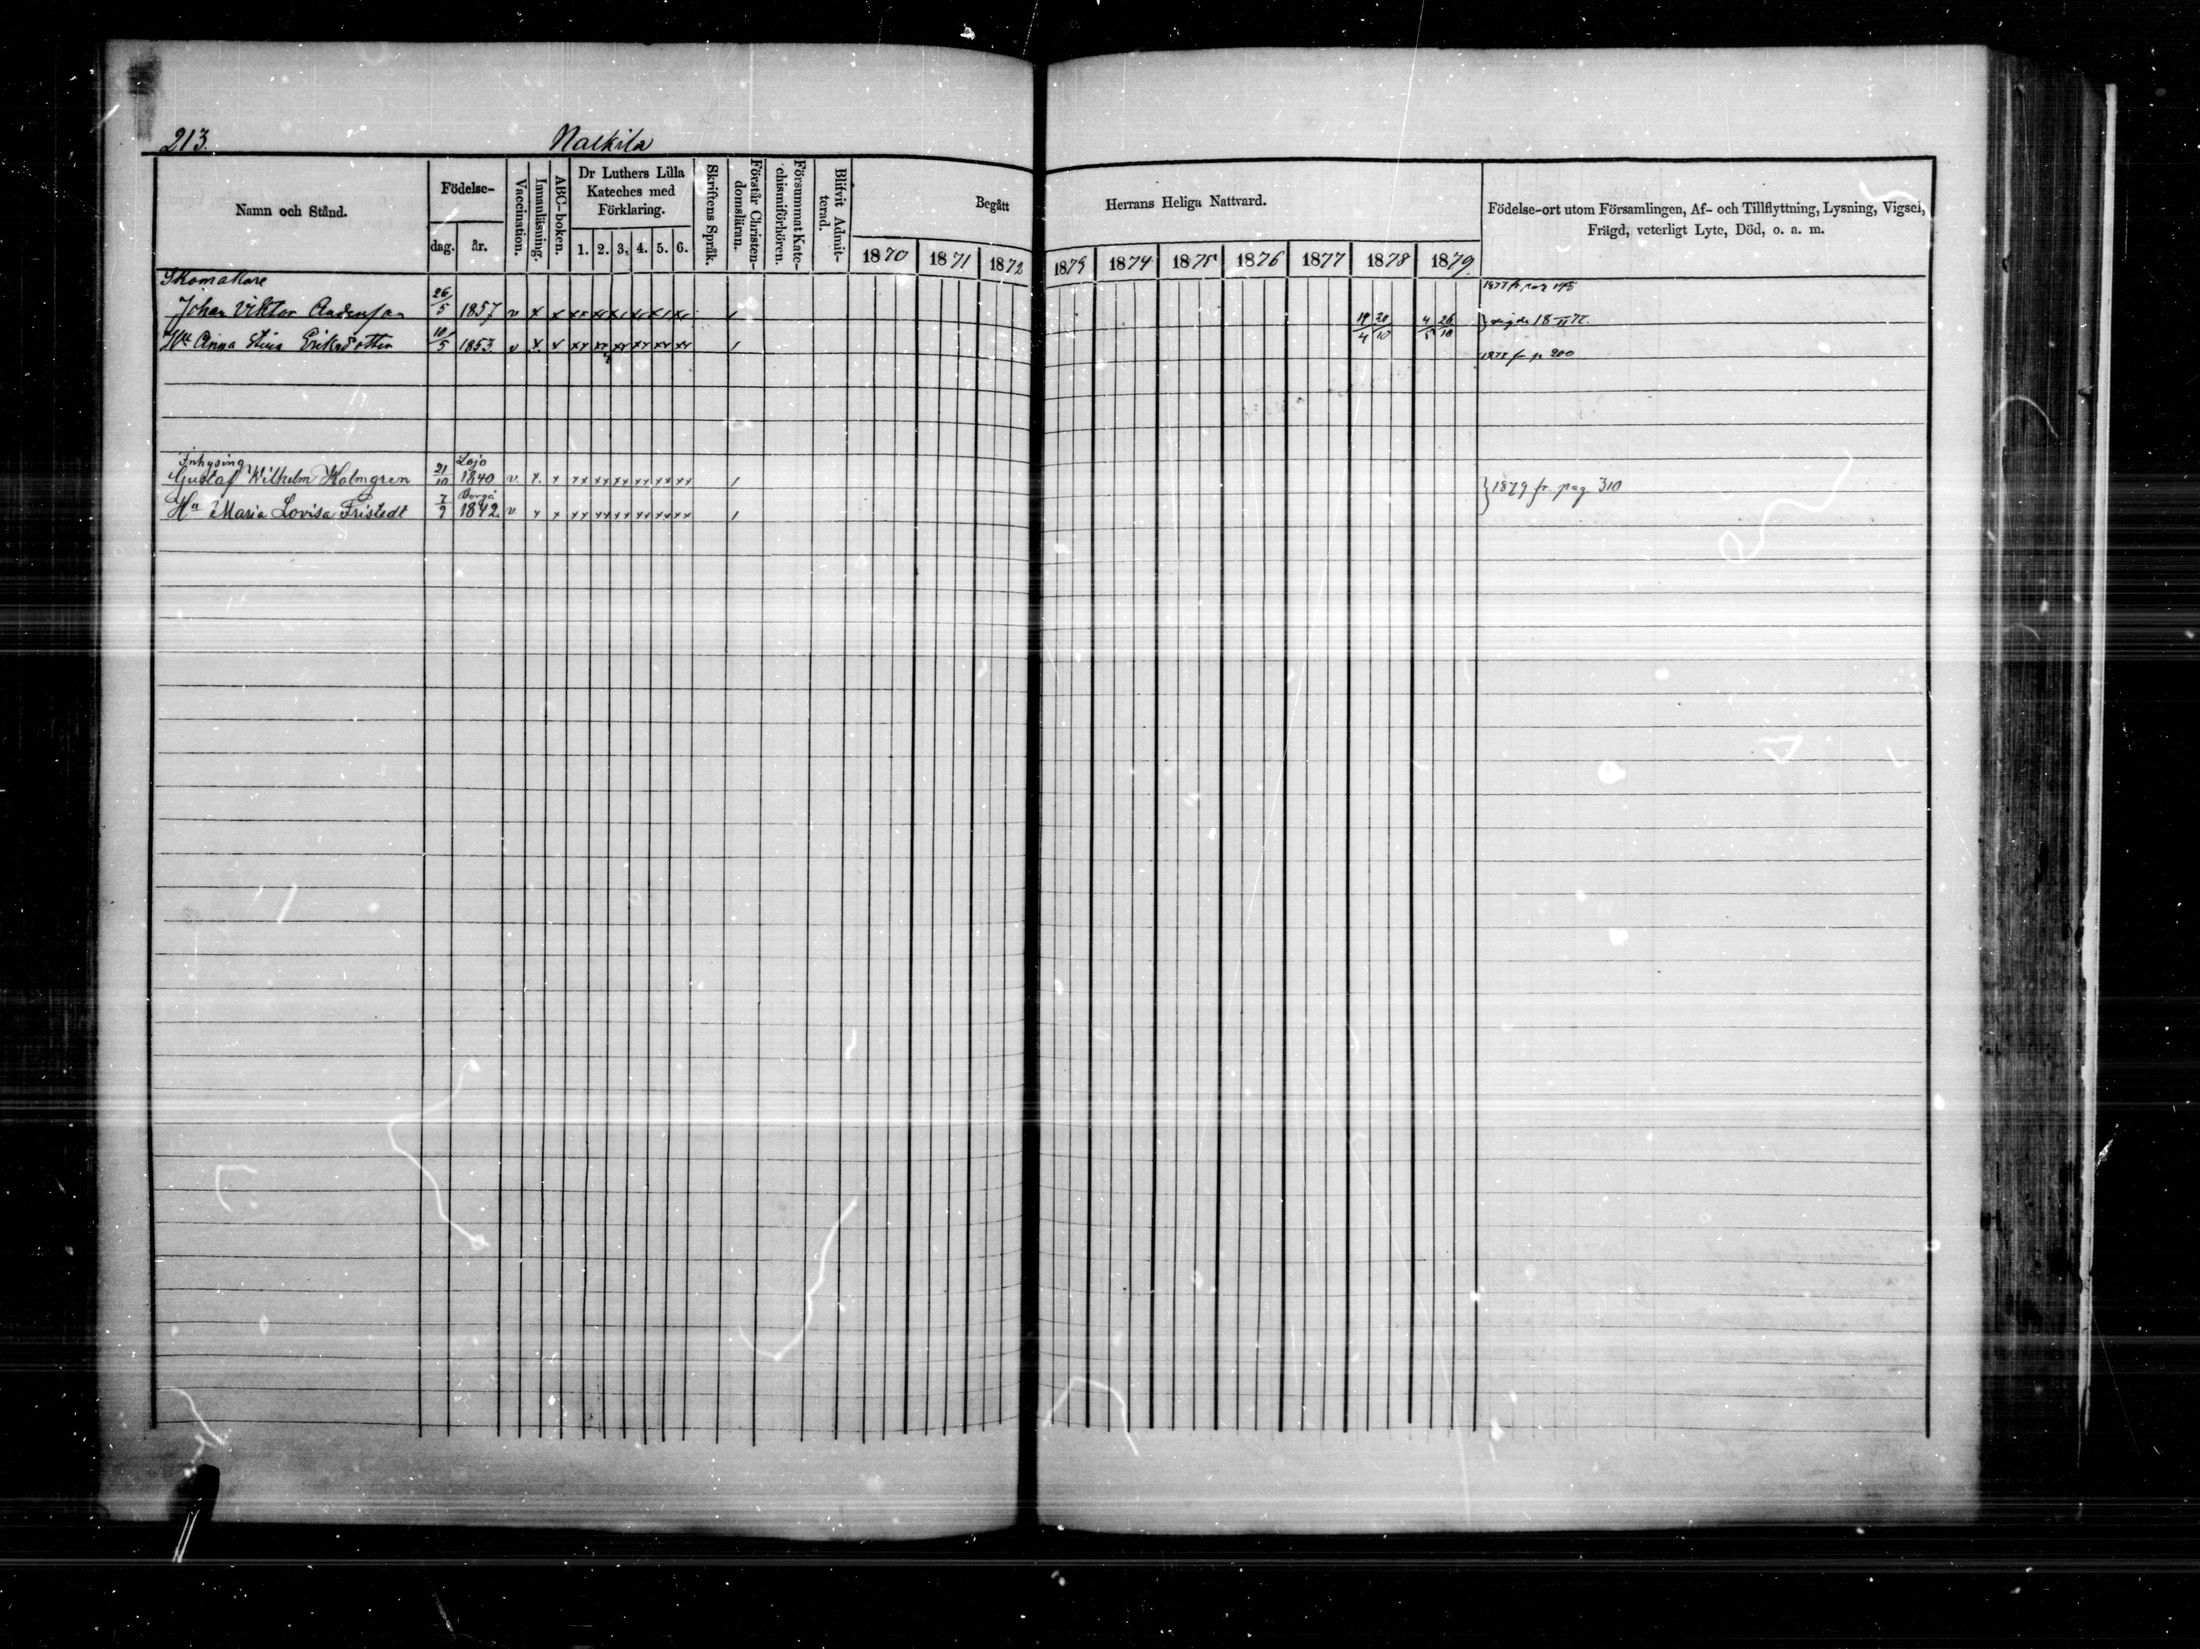 213.
Nalkila
Namn och Stånd.
Födelse-
dag.
år.
Vaccination.
Innanläsning.
ABC-boken.
Dr Luthers Lilla
Kateches med
Förklaring.
1. 2. 3. 4. 5. 6.
Skriftens Språk.
Förstår Christen-
domsläran.
Försummat Kate-
chismiförhören.
Blifvit Admit-
terad.
Begått Herrans Heliga Nattvard.
1870 1871 1872 1873 1874 1875 1876 1877 1878 1879
Födelse-ort utom Församlingen, Af- och Tillflyttning, Lysning, Vigsel,
Frägd, veterligt Lyte, Död, o. a. m.
Skomakare
Johan Viktor Andersson 26/5 1857 v x x xx xx xx xx xx xx / 19/4 20/10 4/5 26/10
Hu Anna Stina Eriksdotter 10/5 1853 v x x xx xx xx xx xx xx /
1878 fr p 200
Inhysing Lojo
Gustaf Wilhelm Holmgren 21/10 1840 v. x x xx xx xx xx xx xx / } 1879 fr. pag 310
Borgå
Ha Maria Lovisa Fristedt 7/9 1842. v x x xx xx xx xx xx xx /